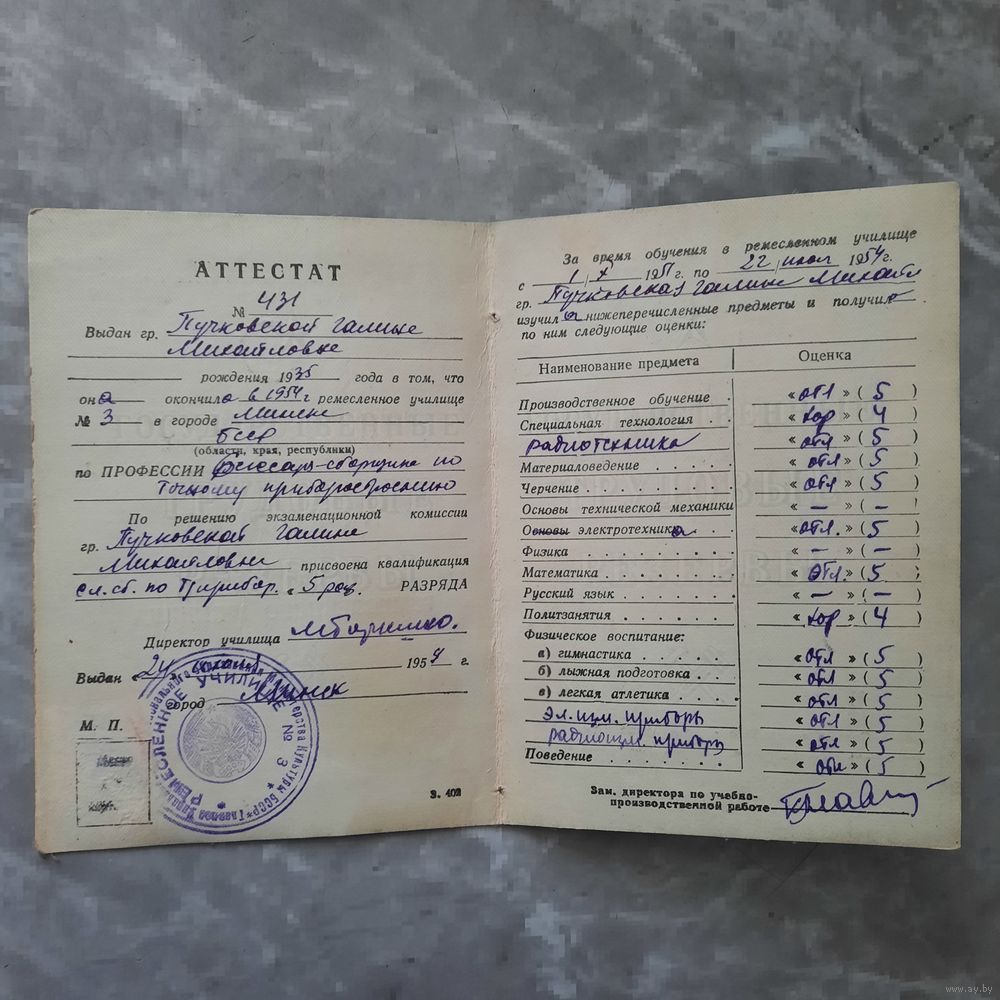 АТТЕСТАТ
№ 431
Выдан гр. Пучковской Галине
Михайловне
рождения 1935 года в том, что
она окончила в 1954 г ремесленное училище
№ 3 в городе Минске
БССР
(области, края, республики)
по ПРОФЕССИИ слесаря-сборщика по
точному приборостроению
По решению экзаменационной комиссии
гр. Пучковской Галине
Михайловне присвоена квалификация
сл.сб. по т/прибор. „5 раз. РАЗРЯДА
Директор училища
Выдан „24 1954 г.
город Минск
М. П.
РЕМЕСЛЕННОЕ УЧИЛИЩЕ № 3
Министерства Культуры БССР * Главное
З. 402
За время обучения в ремесленном училище
с 1/X 1951 г. по 22 июля 1954 г.
гр. Пучковская Галина Михайл
изучила нижеперечисленные предметы и получила
по ним следующие оценки:
Наименование предмета Оценка
Производственное обучение . «отл» (5)
Специальная технология . . «хор» (4)
радиотехника «отл» (5)
Материаловедение . . . . . «отл» (5)
Черчение . . . . . . . . «отл» (5)
Основы технической механики «—» (—)
Основы электротехника «отл.» (5)
Физика . . . . . . . . «—» (—)
Математика . . . . . . . «отл» (5)
Русский язык . . . . . . «—» (—)
Политзанятия . . . . . . «хор» (4)
Физическое воспитание:
а) гимнастика . . . . . «отл» (5)
б) лыжная подготовка . . «отл» (5)
в) легкая атлетика . . . «отл» (5)
эл.изм. приборы «отл» (5)
радиоизм. приборы «отл» (5)
Поведение . . . . . . . «отл» (5)
Зам. директора по учебно-
производственной работе
www.ay.by